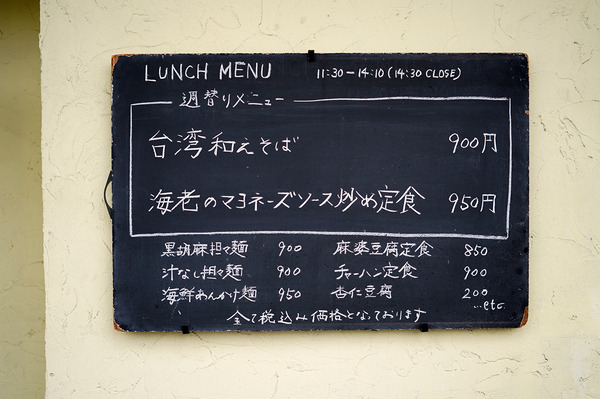 LUNCH MENU 11:30-14:10 (14:30 CLOSE)
週替りメニュー
台湾和えそば 900円
海老のマヨネーズソース炒め定食 950円
黒胡麻担々麺 900 麻婆豆腐定食 850
汁なし担々麺 900 チャーハン定食 900
海鮮あんかけ麺 950 杏仁豆腐 200
...etc.
全て税込み価格となっております